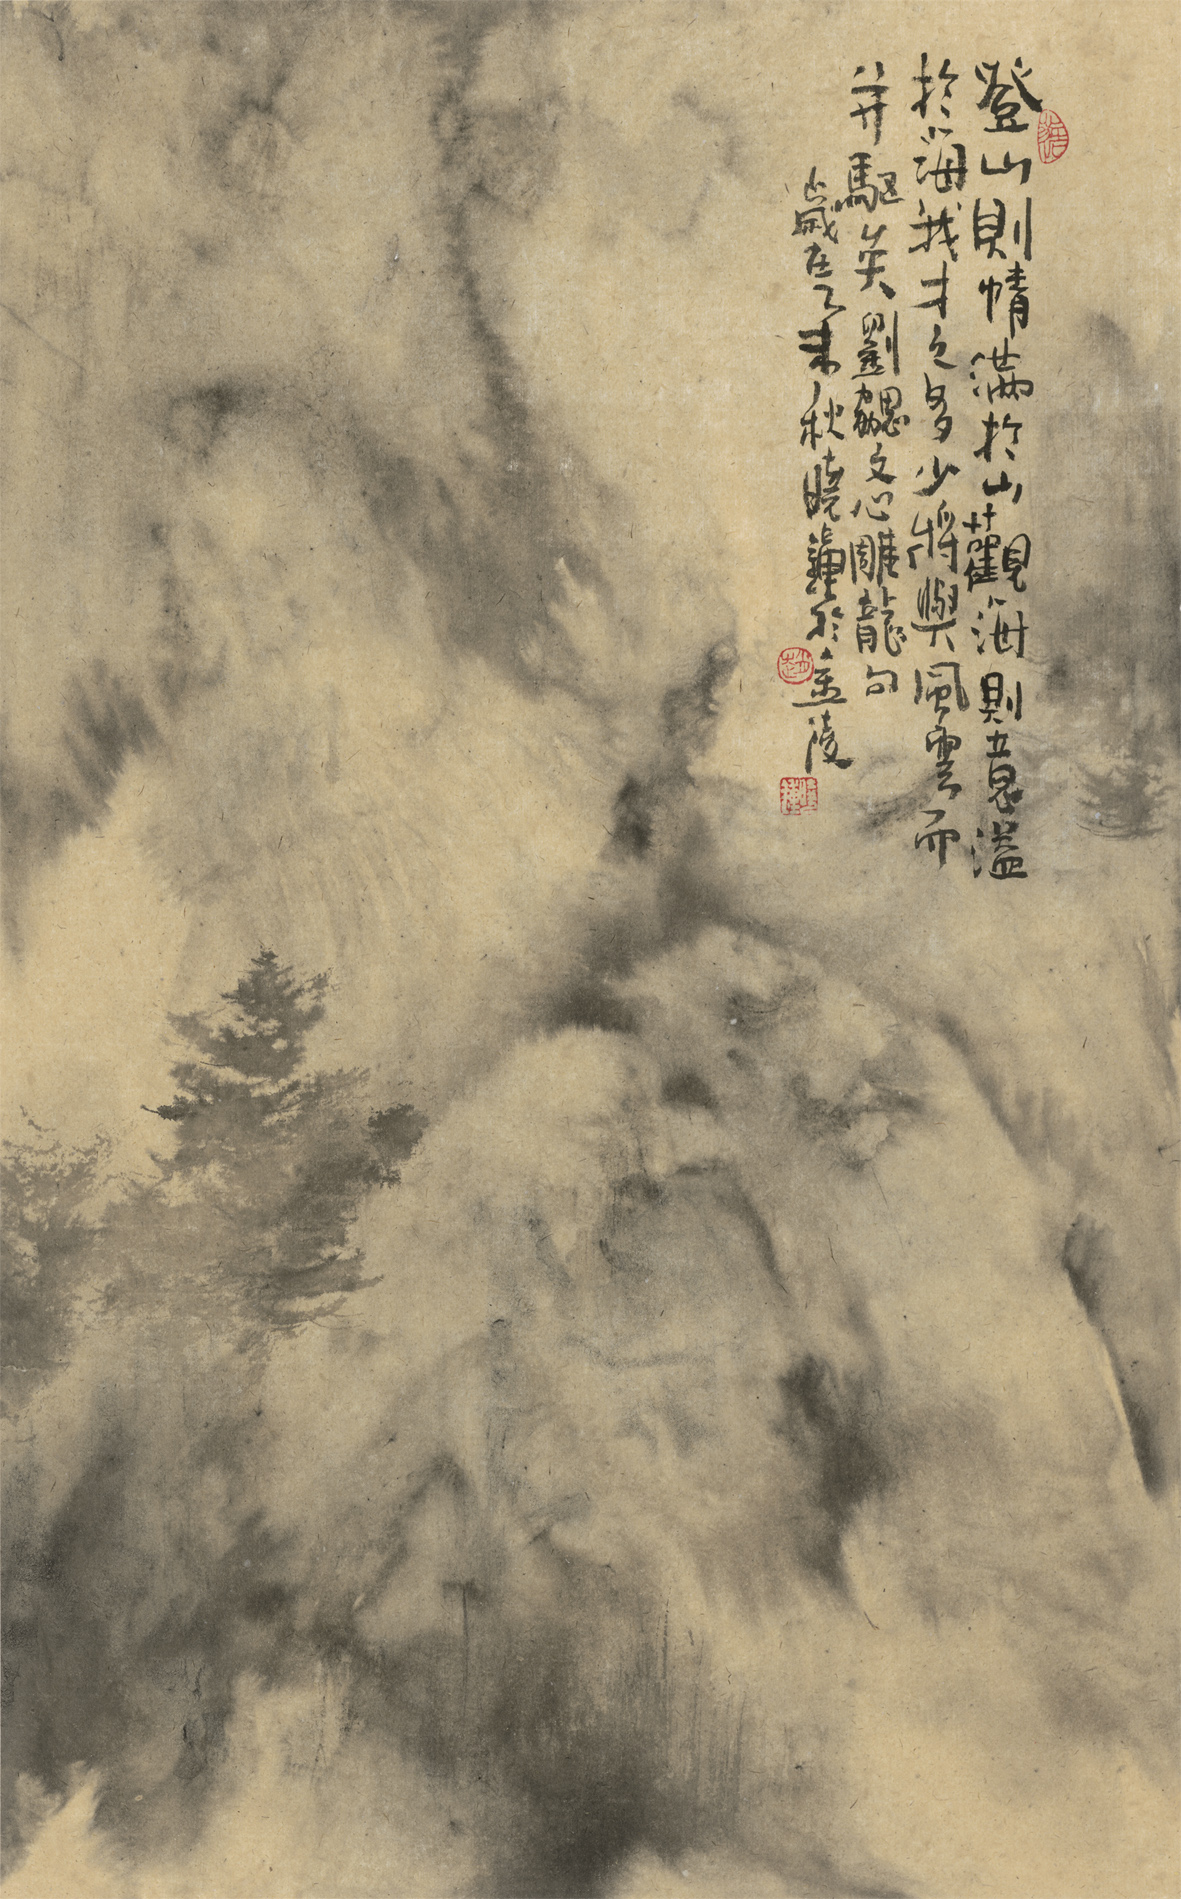 登山則情滿於山觀海則意溢
於海我才之多少將與風雲而
并驅矣劉勰文心雕龍句
歲在乙未秋曉鍾於金陵